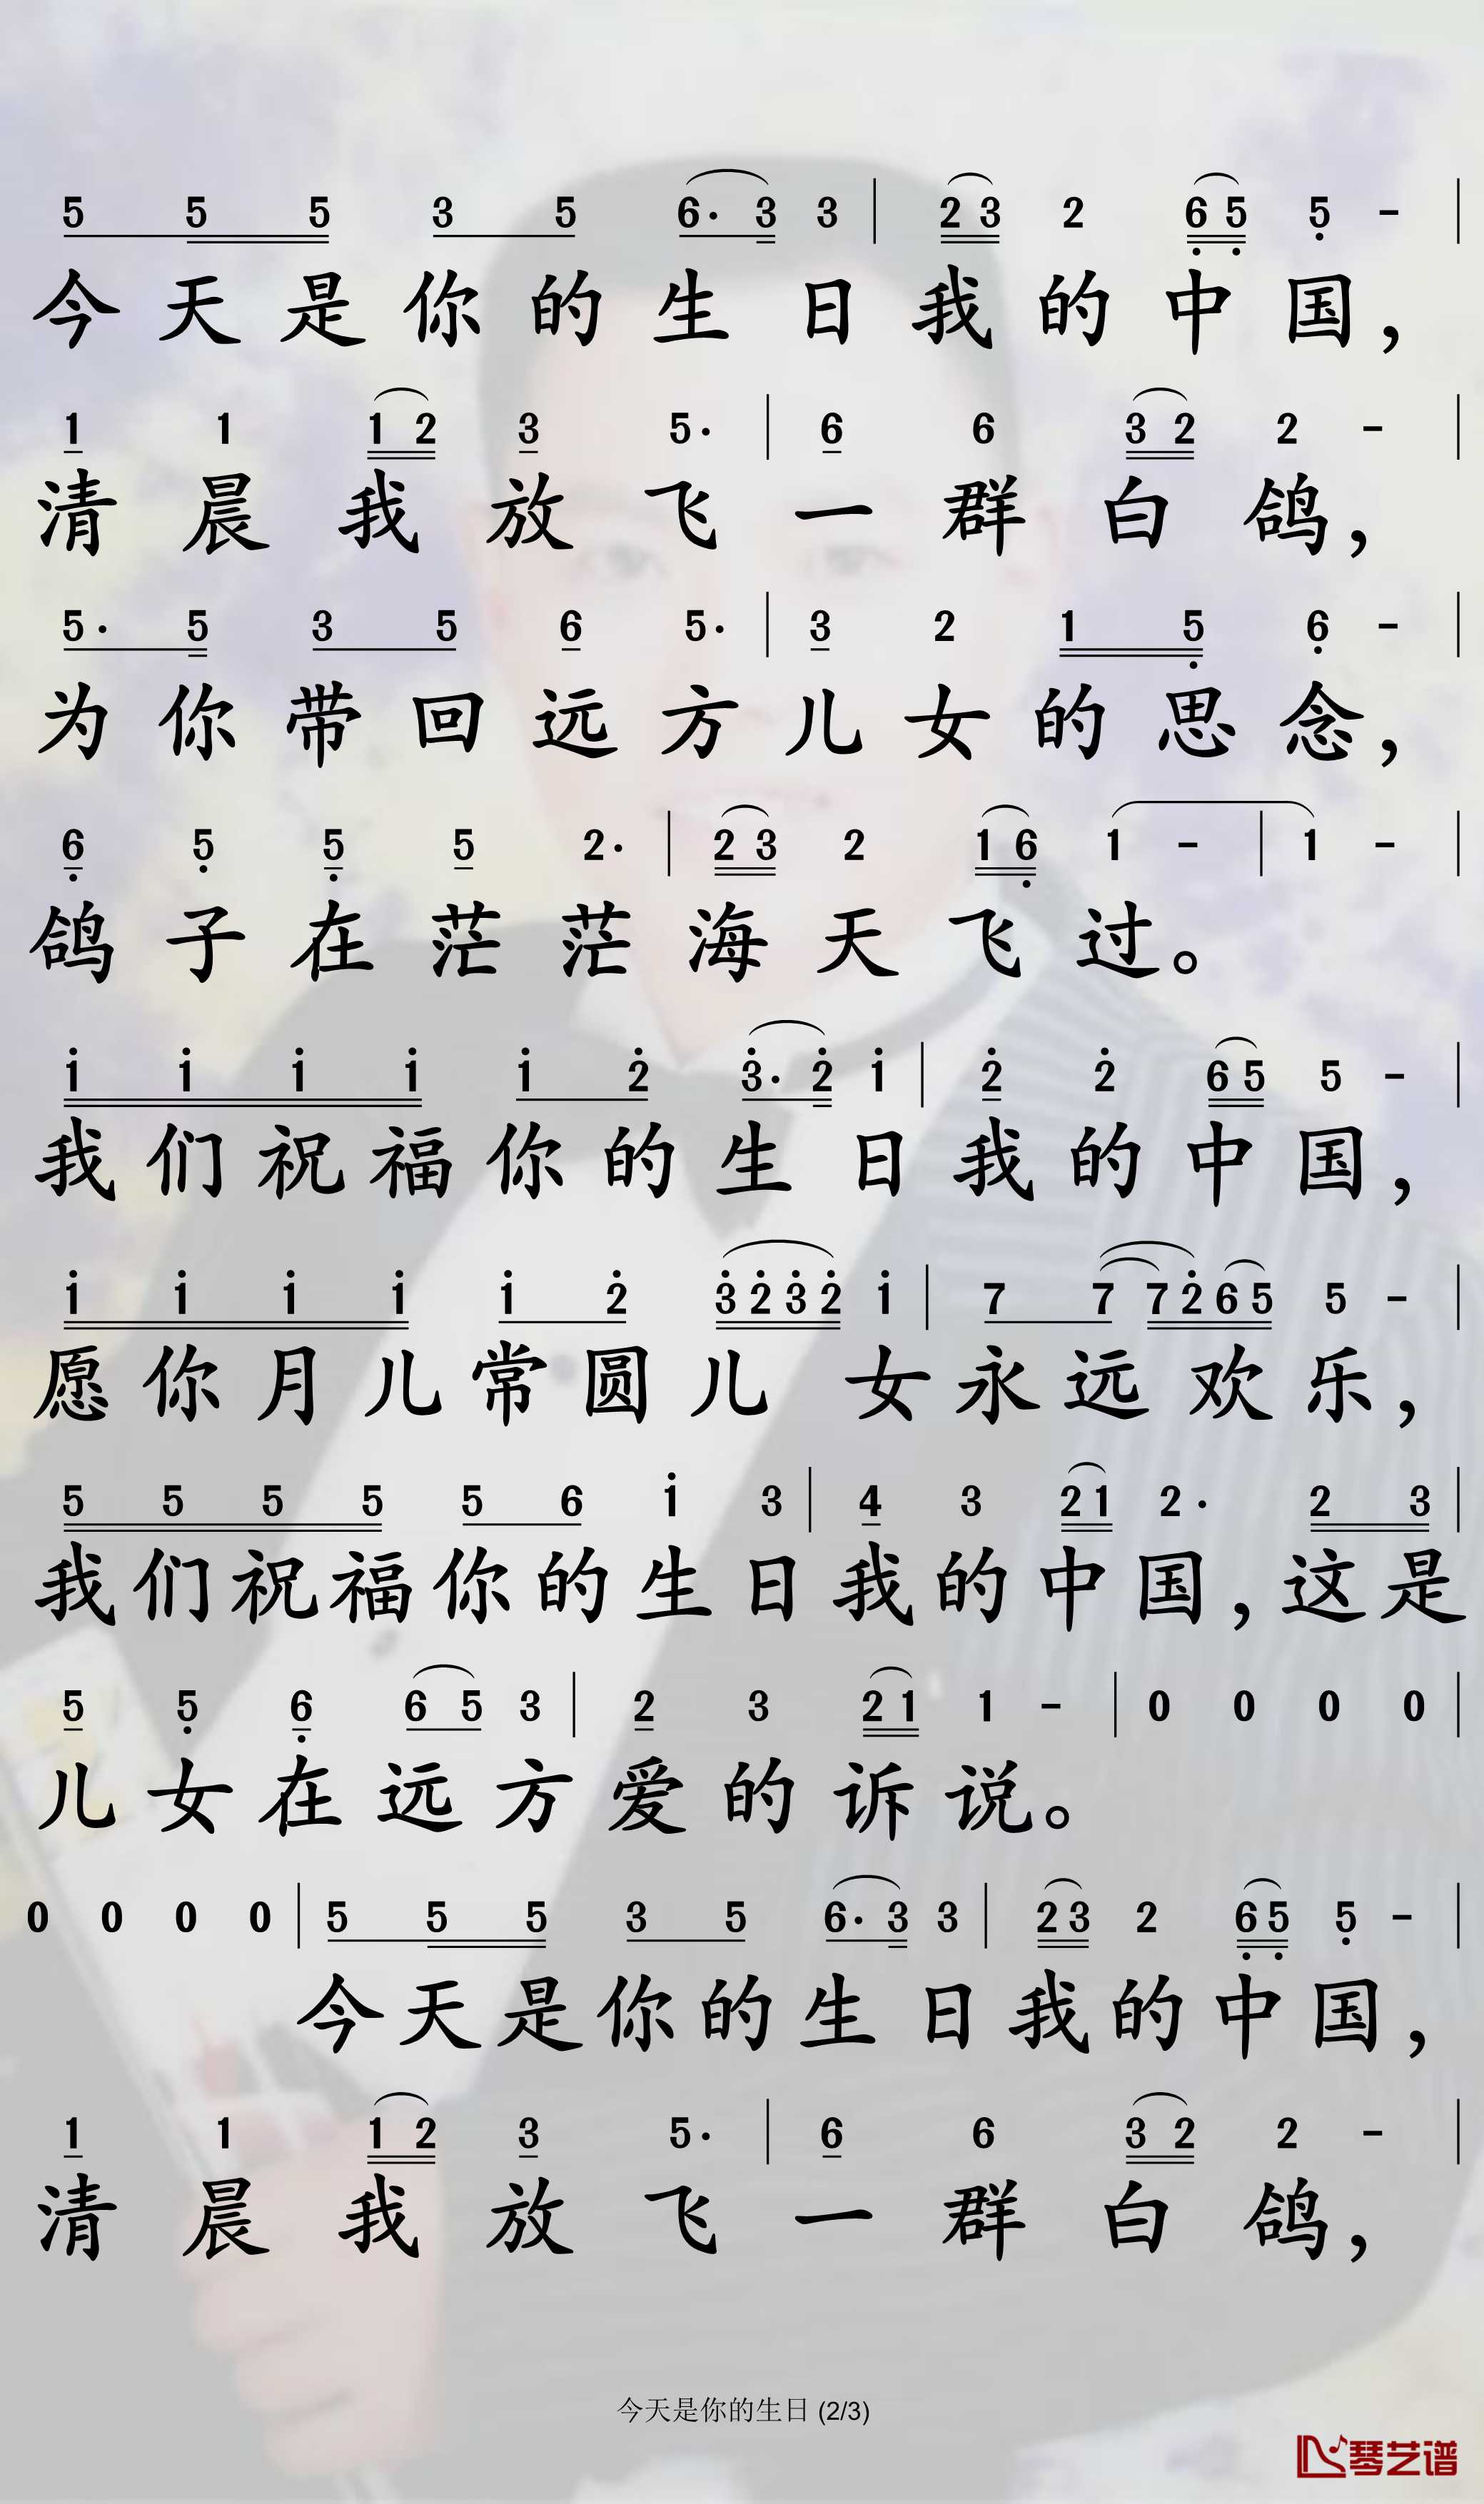 5 5 5 3 5 6· 3 3 | 2 3 2 6̣ 5̣ 5̣ - |
今天是你的生日我的中国，
1 1 1 2 3 5· | 6 6 3 2 2 - |
清晨我放飞一群白鸽，
5· 5 3 5 6 5· | 3 2 1 5̣ 6̣ - |
为你带回远方儿女的思念，
6̣ 5̣ 5̣ 5 2· | 2 3 2 1 6̣ 1 - | 1 - |
鸽子在茫茫海天飞过。
1̇ 1̇ 1̇ 1̇ 1̇ 2̇ 3̇· 2̇ 1̇ | 2̇ 2̇ 6 5 5 - |
我们祝福你的生日我的中国，
1̇ 1̇ 1̇ 1̇ 1̇ 2̇ 3̇ 2̇ 3̇ 2̇ 1̇ | 7 7 7 2̇ 6 5 5 - |
愿你月儿常圆儿女永远欢乐，
5 5 5 5 5 6 1̇ 3 | 4 3 2 1 2· 2 3 |
我们祝福你的生日我的中国，这是
5 5̣ 6̣ 6 5 3 | 2 3 2 1 1 - | 0 0 0 0 |
儿女在远方爱的诉说。
0 0 0 0 | 5 5 5 3 5 6· 3 3 | 2 3 2 6̣ 5̣ 5̣ - |
今天是你的生日我的中国，
1 1 1 2 3 5· | 6 6 3 2 2 - |
清晨我放飞一群白鸽，
今天是你的生日 (2/3)
琴艺谱